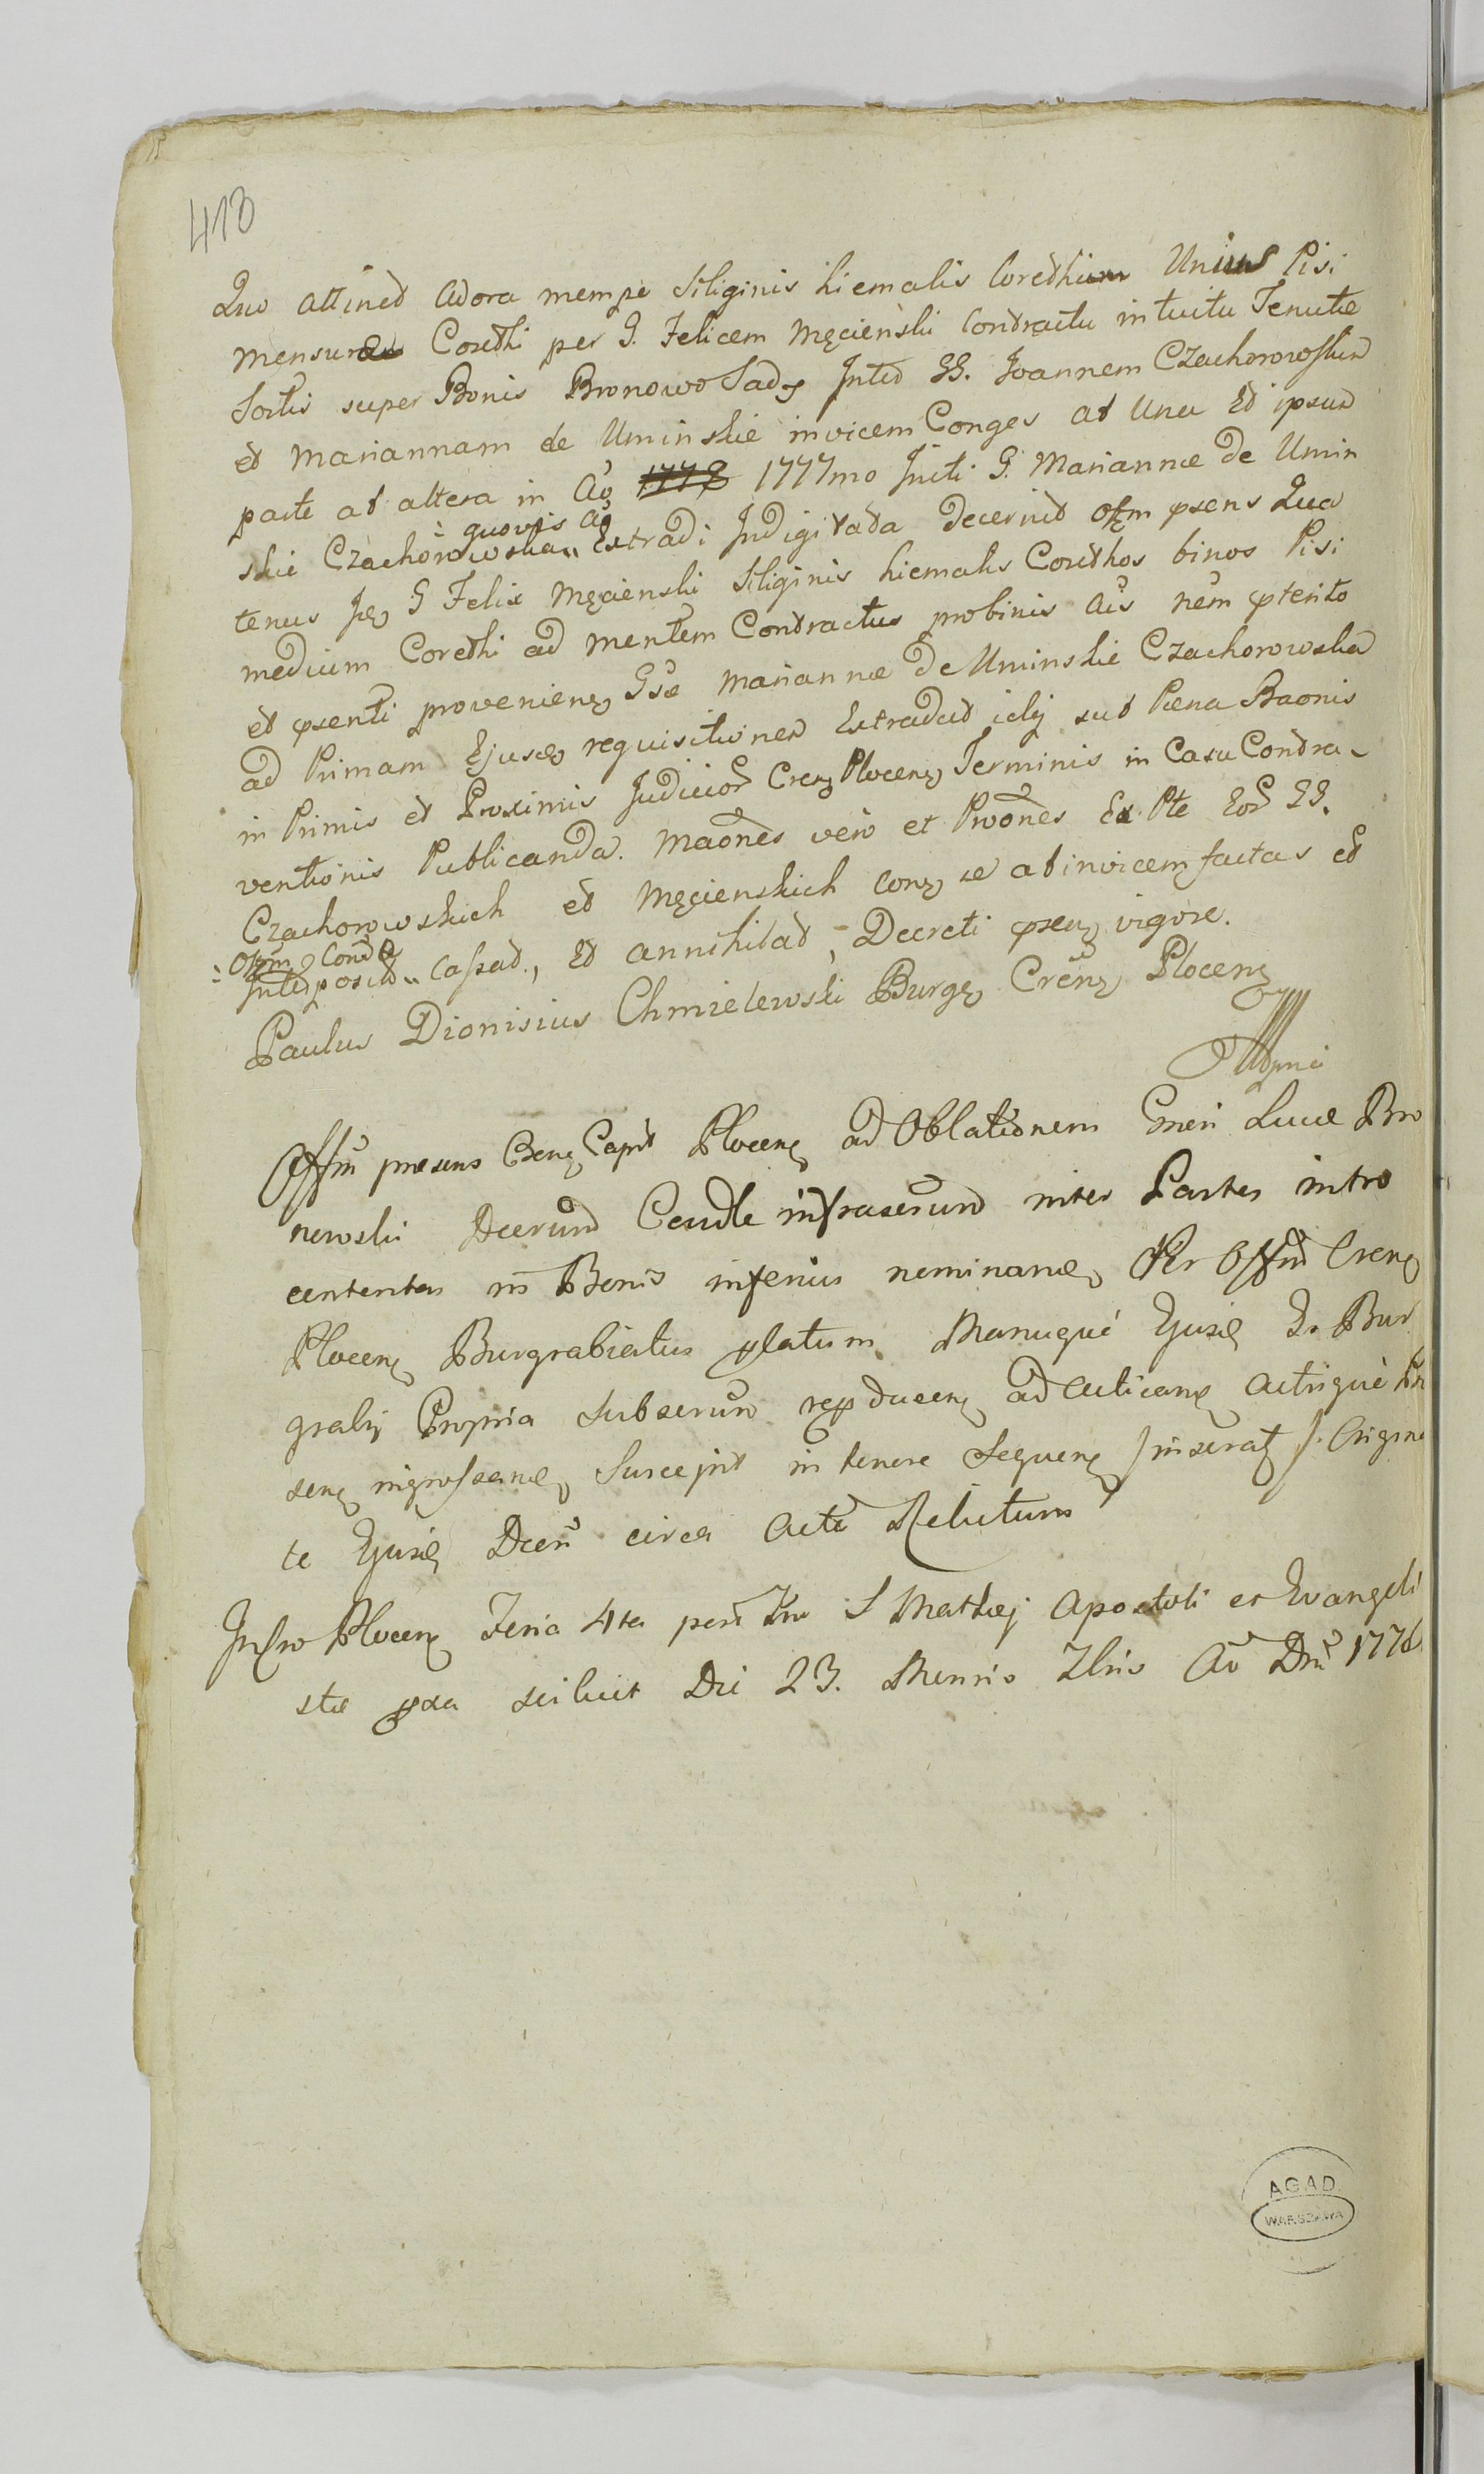 15
413
Quo attinet adora mempe Siliginis hiemalis Corethium Unius Pisi
mensuram Corethi per G. Felicem Męcieński Contractu intuitu Tenutæ
Sortis super Bonis Bronowo Sady Inter GG. Joannem Czachorowskim
et Mariannam de Uminskie invicem Conges ab Una Et ipsum
parte ab altera in Aō 1778 1777mo Initi G. Mariannæ de Umin
quovis Aō
skie Czachorowska Extradi Indigitata decernit Offm psens Qua
tenus G Felix Męcienski Siliginis hiemalis Corethos binos Pisi
medium Corethi ad mentem Contractus pro binis Ais nem pterito
et psenti provenien Gsæ Mariannæ de Uminskie Czachorowska
ad Primam Ejusd requisitionem Extradat idq sub Pœna Baonis
in Primis et Proximis Judicior Cren Plocen Terminis in Casu Contra-
ventionis Publicanda. Maones vero et Prvones Ex Pte Eor GG.
Czachorowskich et Męcienskich con se ab invicem factas et
Offm Cond
Interposit cassat, Et annihilat, Decreti psen vigore.
Paulus Dionisius Chmielewski Burg Cren Plocen
Offm præsens Cren Capit Plocen ad Oblationem Gneri Lucæ Bro
newski Decrum Condle infrascrum inter Partes intro
contentas in Bonis inferius nominand Per Offm Cren
Plocen Burgrabiatus platum Manuque Ejusd G. Bur
grabij Propria Subscrum repducen ad acticand Actisque Præ
sen ingrossand Suscepit in tenore Sequen /inserat/. Origina
te Ejusd Decri circa Acta Relictum
Plocen Feria 4ta post Fm S Mathæj Apostoli et Evangeli
stæ pxa scilicet Die 23. Mensis 7bris Aō Dni 1778
AGAD
WARSZAWA